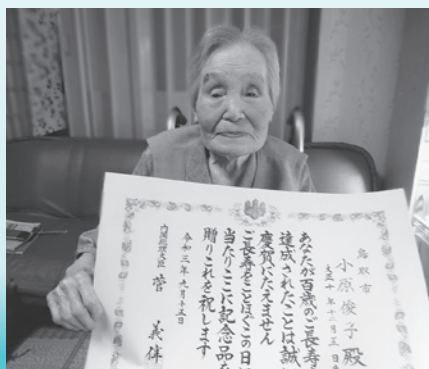 鳥取市
大正十年十二月五日
小原俊子殿
あなたが百歳のご長寿
達成されたことは誠
慶賀にたえません
ご長寿をことほぐこの日に
当たりここに記念品を
贈りこれを祝します
令和三年九月五日
内閣総理大臣 菅 義偉